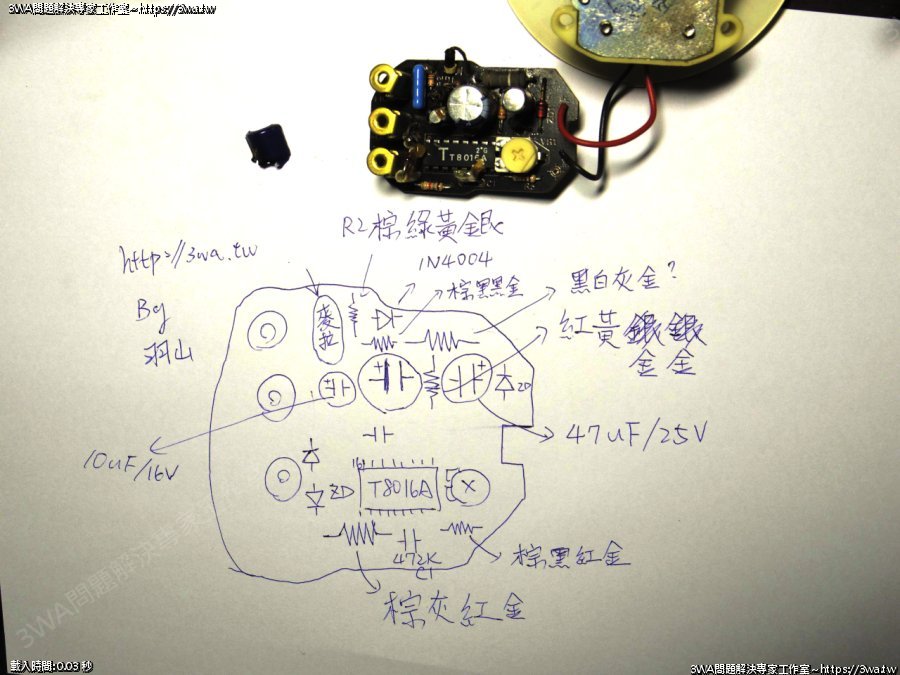 3WA問題解決專家工作室~https://3wa.tw
3WA問題解決專家工作室~https://3wa.tw
2*G
T T8016A
R2棕綠黃銀
http://3wa.tw
1N4004
棕黑黑金
黑白灰金?
By
羽山
麥拉
紅黃銀銀
金金
ZD
10uF/16V
47uF/25V
16
ZD
T8016A
472K
C1
棕黑紅金
棕灰紅金
3WA問題解決專家
載入時間:0.03 秒
3WA問題解決專家工作室~https://3wa.tw